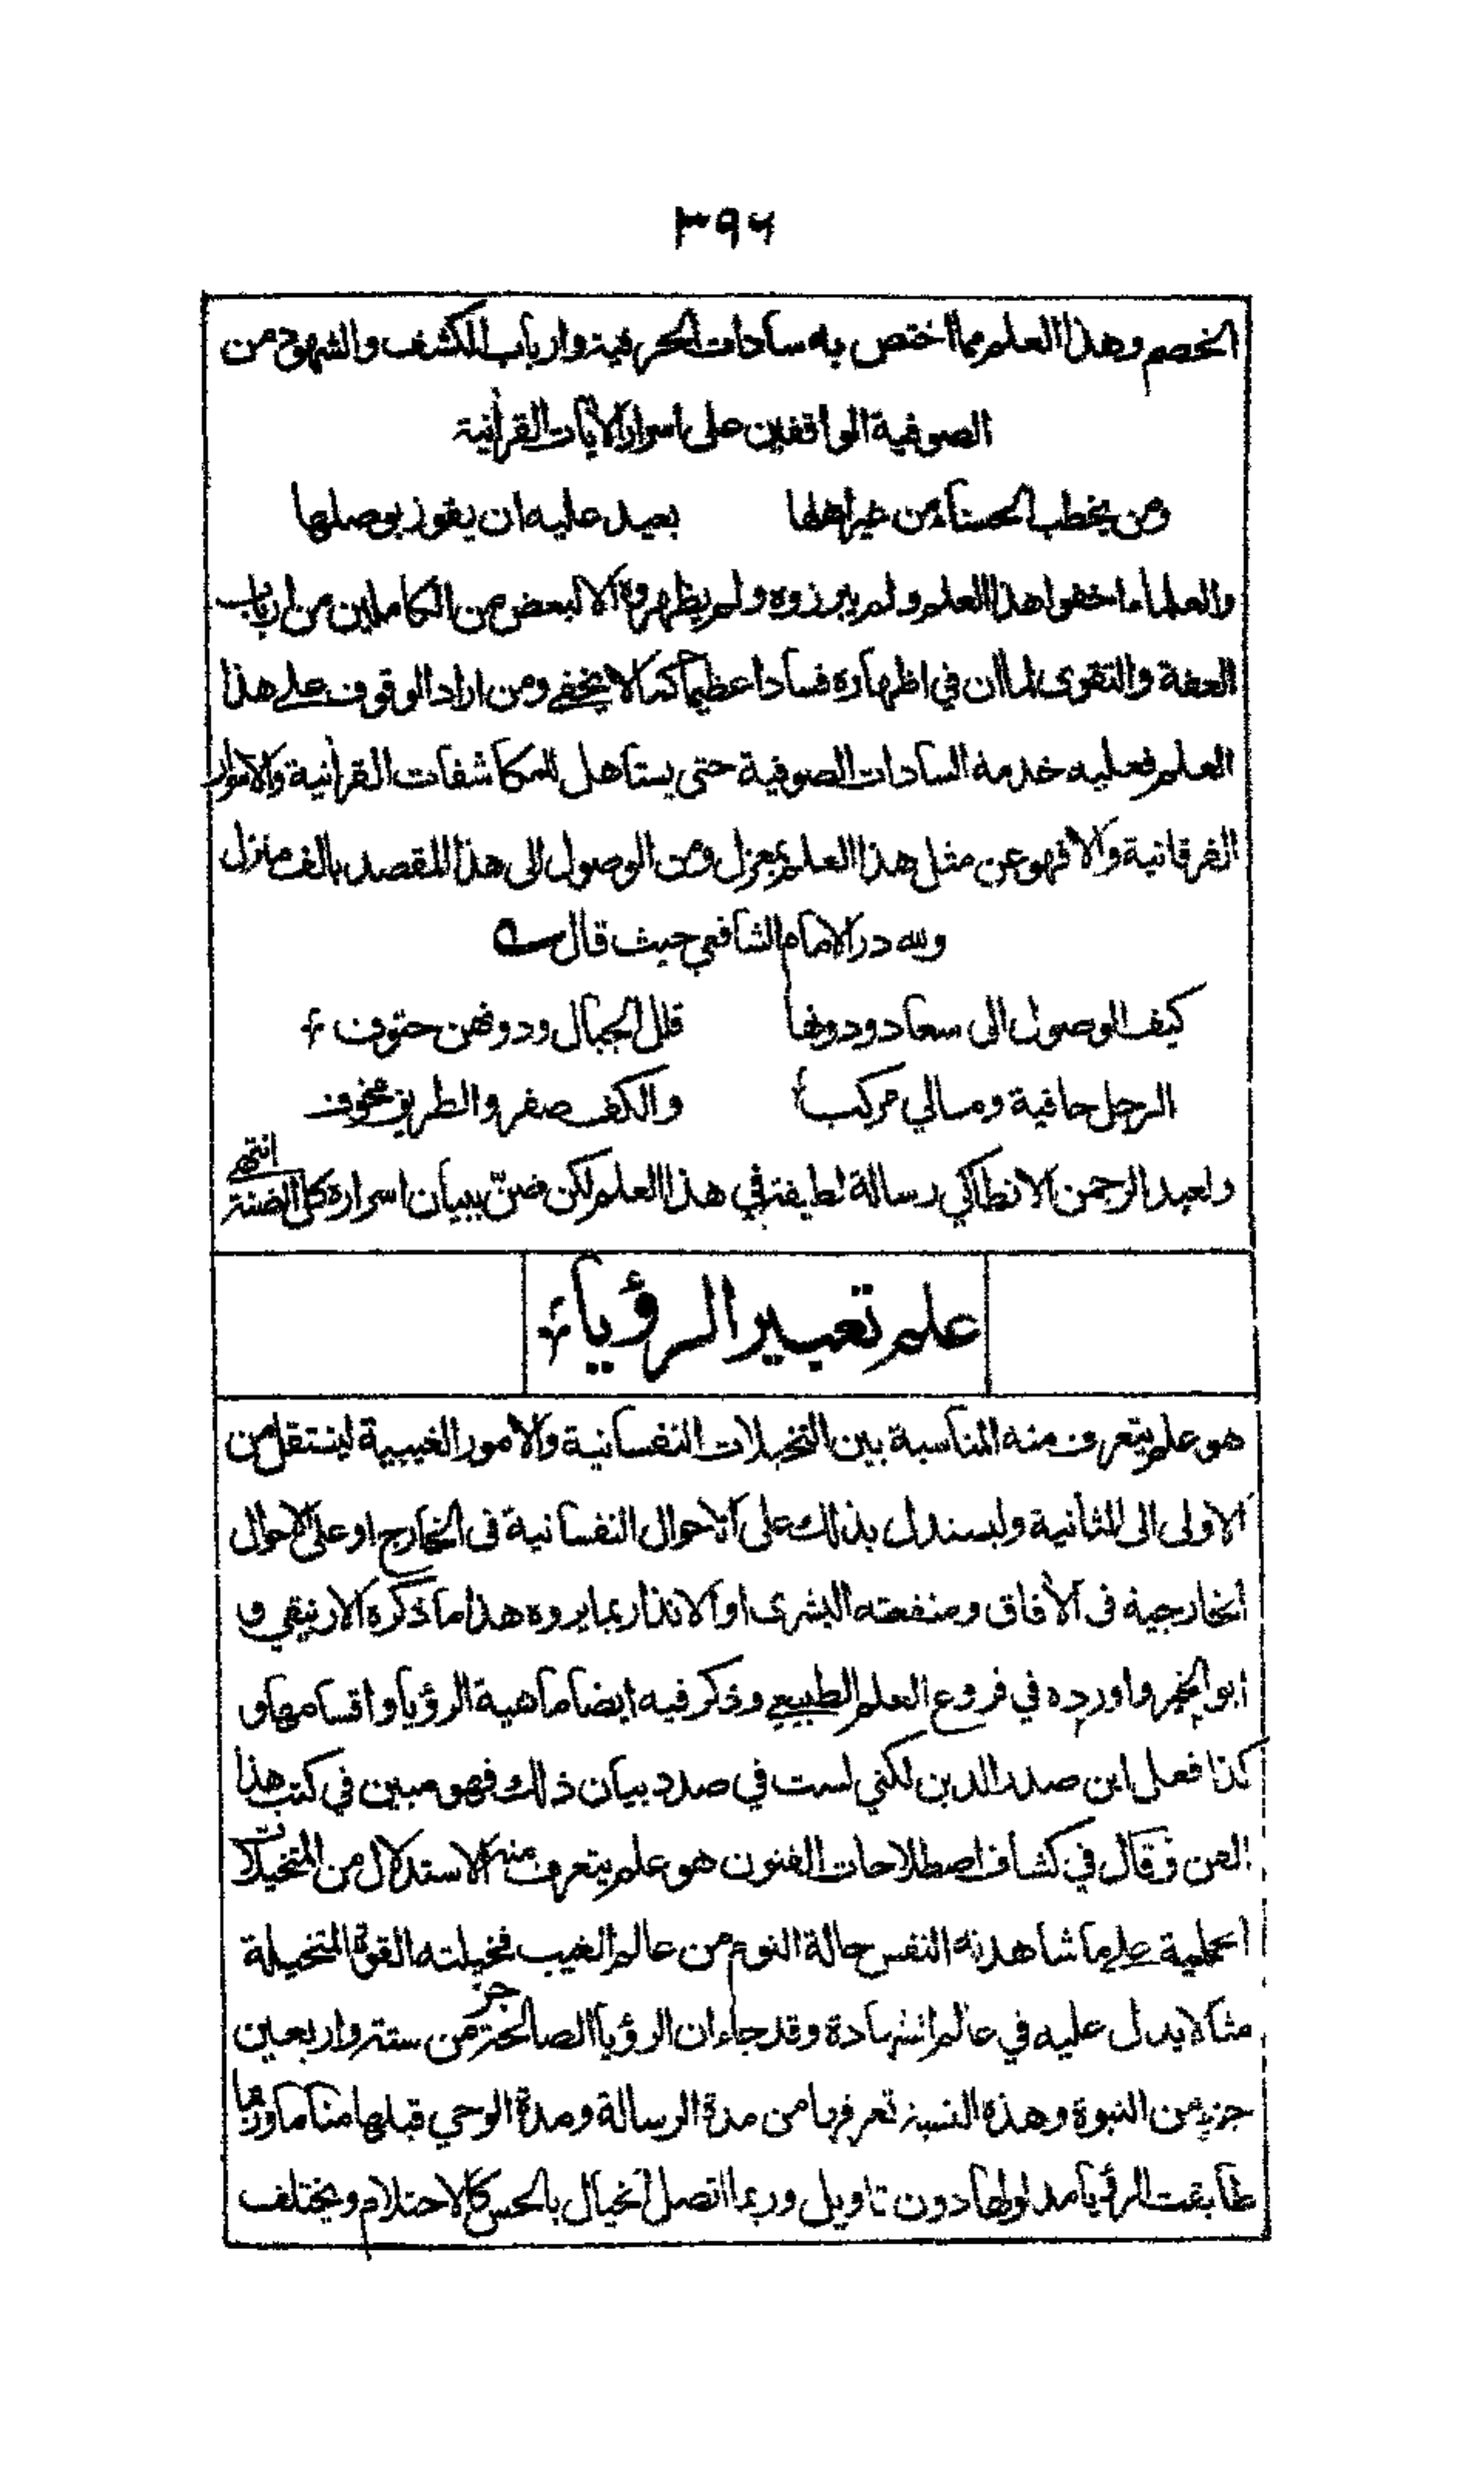 ٣٩٦
الخصم وهذا العلم مما اختص به سادات الحرفية وارباب الكشف والشهود من
الصوفية الواقفين على اسرار الآيات القرآنية
ومن يخطب الحسناء من غير اهلها بعيد عليه ان يفوز بوصلها
والعلماء اخفوا هذا العلم ولم يبرزوه ولم يظهروه الا لبعض من الكاملين من ارباب
العفة والتقوى لما ان في اظهاره فسادا عظيما كما لا يخفى ومن اراد الوقوف على هذا
العلم فعليه خدمة السادات الصوفية حتى يستاهل للمكاشفات القرآنية والانوار
الفرقانية والا فهو عن مثل هذا العلم بمعزل وعن الوصول الى هذا المقصد بالف منزل
ولله در الامام الشافعي حيث قال
كيف الوصول الى سعاد ودونها قلل الجبال ودونهن حتوف
الرجل حافية ومالي مركب والكف صفر والطريق مخوف
ولعبد الرحمن الانطاكي رسالة لطيفة في هذا العلم لكن ضنّ ببيان اسراره كل الضنة انتهى
علم تعبير الرؤياء
هو علم يتعرف منه المناسبة بين التخيلات النفسانية والامور الغيبية لينتقل من
الاولى الى الثانية وليستدل بذلك على الاحوال النفسانية في الخارج او على الاحوال
الخارجية في الآفاق ومنفعته البشرى او الانذار بما يروه هذا ما ذكره الارنيقي و
ابو الخير واورده في فروع العلم الطبيعي وذكر فيه ايضا ماهية الرؤيا واقسامها و
كذا فعل ابن صدر الدين لكني لست في صدد بيان ذلك فهو مبين في كتب هذا
الفن وقال في كشاف اصطلاحات الفنون هو علم يتعرف منه الاستدلال من المتخيلات
الحلمية على ما شاهدته النفس حالة النوم من عالم الغيب فخيلته القوة المتخيلة
مثالا يدل عليه في عالم الشهادة وقد جاء ان الرؤيا الصالحة جزء من ستة واربعين
جزء من النبوة وهذه النسبة تعرفها من مدة الرسالة ومدة الوحي قبلها مناما وربما
طابقت الرؤيا مدلولها دون تاويل وربما اتصل الخيال بالحس كالاحتلام ويختلف